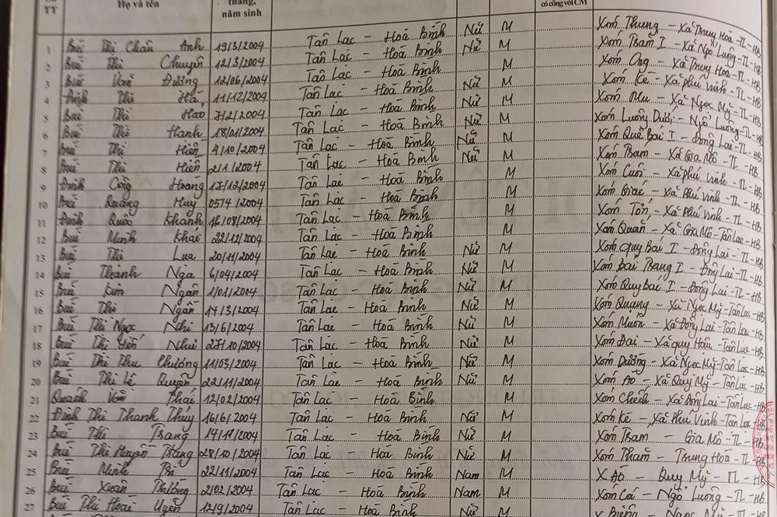 TT Họ và tên tháng, năm sinh có công với CM
1 Bùi Thị Châu Anh 19/3/2004 Tân Lạc – Hoà Bình Nữ M Xóm Thung – Xã Truy Hoà – TL – HB
2 Bùi Thị Chuyên 12/3/2004 Tân Lạc – Hoà Bình Nữ M Xóm Trám I – Xã Ngổ Luông – TL – HB
3 Bùi Văn Đường 12/06/2004 Tân Lạc – Hoà Bình M Xóm Ong – Xã Truy Hoà – TL – HB
4 Đinh Thị Hà 11/12/2004 Tân Lạc – Hoà Bình Nữ M Xóm Kè – Xã Phú Vinh – TL – HB
5 Bùi Thị Hảo 2004 Tân Lạc – Hoà Bình Nữ M Xóm – Xã Ngọc Mỹ – TL – HB
6 Bùi Thị Hạnh 18/01/2004 Tân Lạc – Hoà Bình Nữ M Xóm Luông Dưới – Ngổ Luông – TL – HB
7 Bùi Thị Hiền 4/10/2004 Tân Lạc – Hoà Bình Nữ M Xóm Bái I – Đông Lai – TL – HB
8 Bùi Thị Hiền 2/1/2004 Tân Lạc – Hoà Bình Nữ M Xóm Trám – Xã Gia Mô – TL – HB
9 Đinh Công Hoàng 17/12/2004 Tân Lạc – Hoà Bình M Xóm – Xã Phú Vinh – TL – HB
10 Bùi Quang Huy 2004 Tân Lạc – Hoà Bình M Xóm Giác – Xã Phú Vinh – TL – HB
11 Đinh Quốc Khánh 16/08/2004 Tân Lạc – Hoà Bình M Xóm Tớn – Xã Phú Vinh – TL – HB
12 Bùi Minh Khải 22/12/2004 Tân Lạc – Hoà Bình M Xóm Quắn – Xã Gia Mô – Tân Lạc – HB
13 Bùi Thị Lụa 20/11/2004 Tân Lạc – Hoà Bình Nữ M Xóm Quy Bái I – Đông Lai – TL – HB
14 Bùi Thanh Nga 6/04/2004 Tân Lạc – Hoà Bình Nữ M Xóm Bái Trang I – Đông Lai – TL – HB
15 Bùi Kim Ngân 1/01/2004 Tân Lạc – Hoà Bình Nữ M Xóm Quy Bái I – Đông Lai – TL – HB
16 Bùi Thị Ngân 14/3/2004 Tân Lạc – Hoà Bình Nữ M Xóm Quang – Xã Ngọc Mỹ – Tân Lạc – HB
17 Bùi Thị Ngọc Nhi 13/6/2004 Tân Lạc – Hoà Bình Nữ M Xóm Muôn – Xã Đông Lai – Tân Lạc – HB
18 Bùi Thị Yến Như 23/10/2004 Tân Lạc – Hoà Bình Nữ M Xóm Đai – Xã Quy Hậu – Tân Lạc – HB
19 Bùi Thị Thu Phương 11/03/2004 Tân Lạc – Hoà Bình Nữ M Xóm Dường – Xã Ngọc Mỹ – Tân Lạc – HB
20 Bùi Thị Lệ Quyên 22/11/2004 Tân Lạc – Hoà Bình Nữ M Xóm Áo – Xã Quy Mỹ – Tân Lạc – HB
21 Quách Văn Thái 12/02/2004 Tân Lạc – Hoà Bình M Xóm Chếch – Xã Đông Lai – Tân Lạc – HB
22 Đinh Thị Thanh Thúy 16/6/2004 Tân Lạc – Hoà Bình Nữ M Xóm Kè – Xã Phú Vinh – Tân Lạc – HB
23 Bùi Thị Trang 14/11/2004 Tân Lạc – Hoà Bình Nữ M Xóm Trám – Gia Mô – TL – HB
24 Bùi Thị Huyền Trang 28/10/2004 Tân Lạc – Hoà Bình Nữ M Xóm Thăm – Trung Hoà – TL – HB
25 Bùi Minh 22/11/2004 Tân Lạc – Hoà Bình Nam M X. Áo – Quy Mỹ – TL – HB
26 Bùi Xuân Trường 2/02/2004 Tân Lạc – Hoà Bình Nam M Xóm Cai – Ngổ Luông – TL – HB
27 Bùi Thị Hoài Uyên 12/9/2004 Tân Lạc – Hoà Bình Nữ M